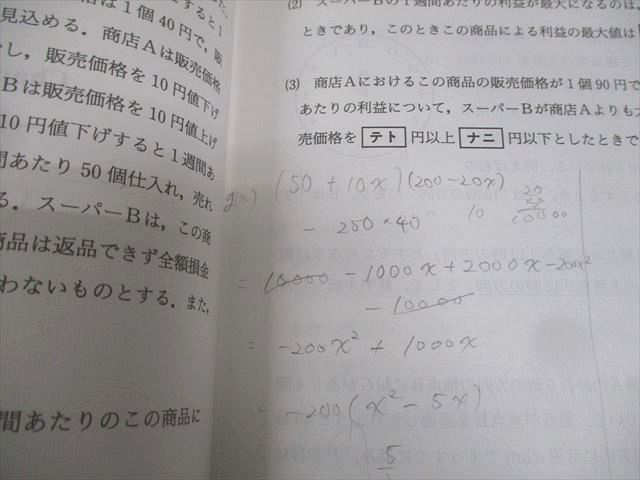 は1個40円で，販
見込める．商店Aは販売価格
し，販売価格を10円値下げ
Bは販売価格を10円値上げ
10円値下げすると1週間あ
間あたり50個仕入れ，売れ
る．スーパーBは，この商
商品は返品できず全額損金
わないものとする．また，
間あたりのこの商品に
(2) スーパーBの1週間あたりの利益が最大になるのは
ときであり，このときこの商品による利益の最大値は
(3) 商店Aにおけるこの商品の販売価格が1個90円で
あたりの利益について，スーパーBが商店Aよりも大
売価格を テト 円以上 ナニ 円以下としたときで
g(x) (50 + 10x)(200-20x)
- 250×40
10
= 10000 - 1000x + 2000x - 200x²
- 10000
= -200x² + 1000x
= -200(x² - 5x)
5